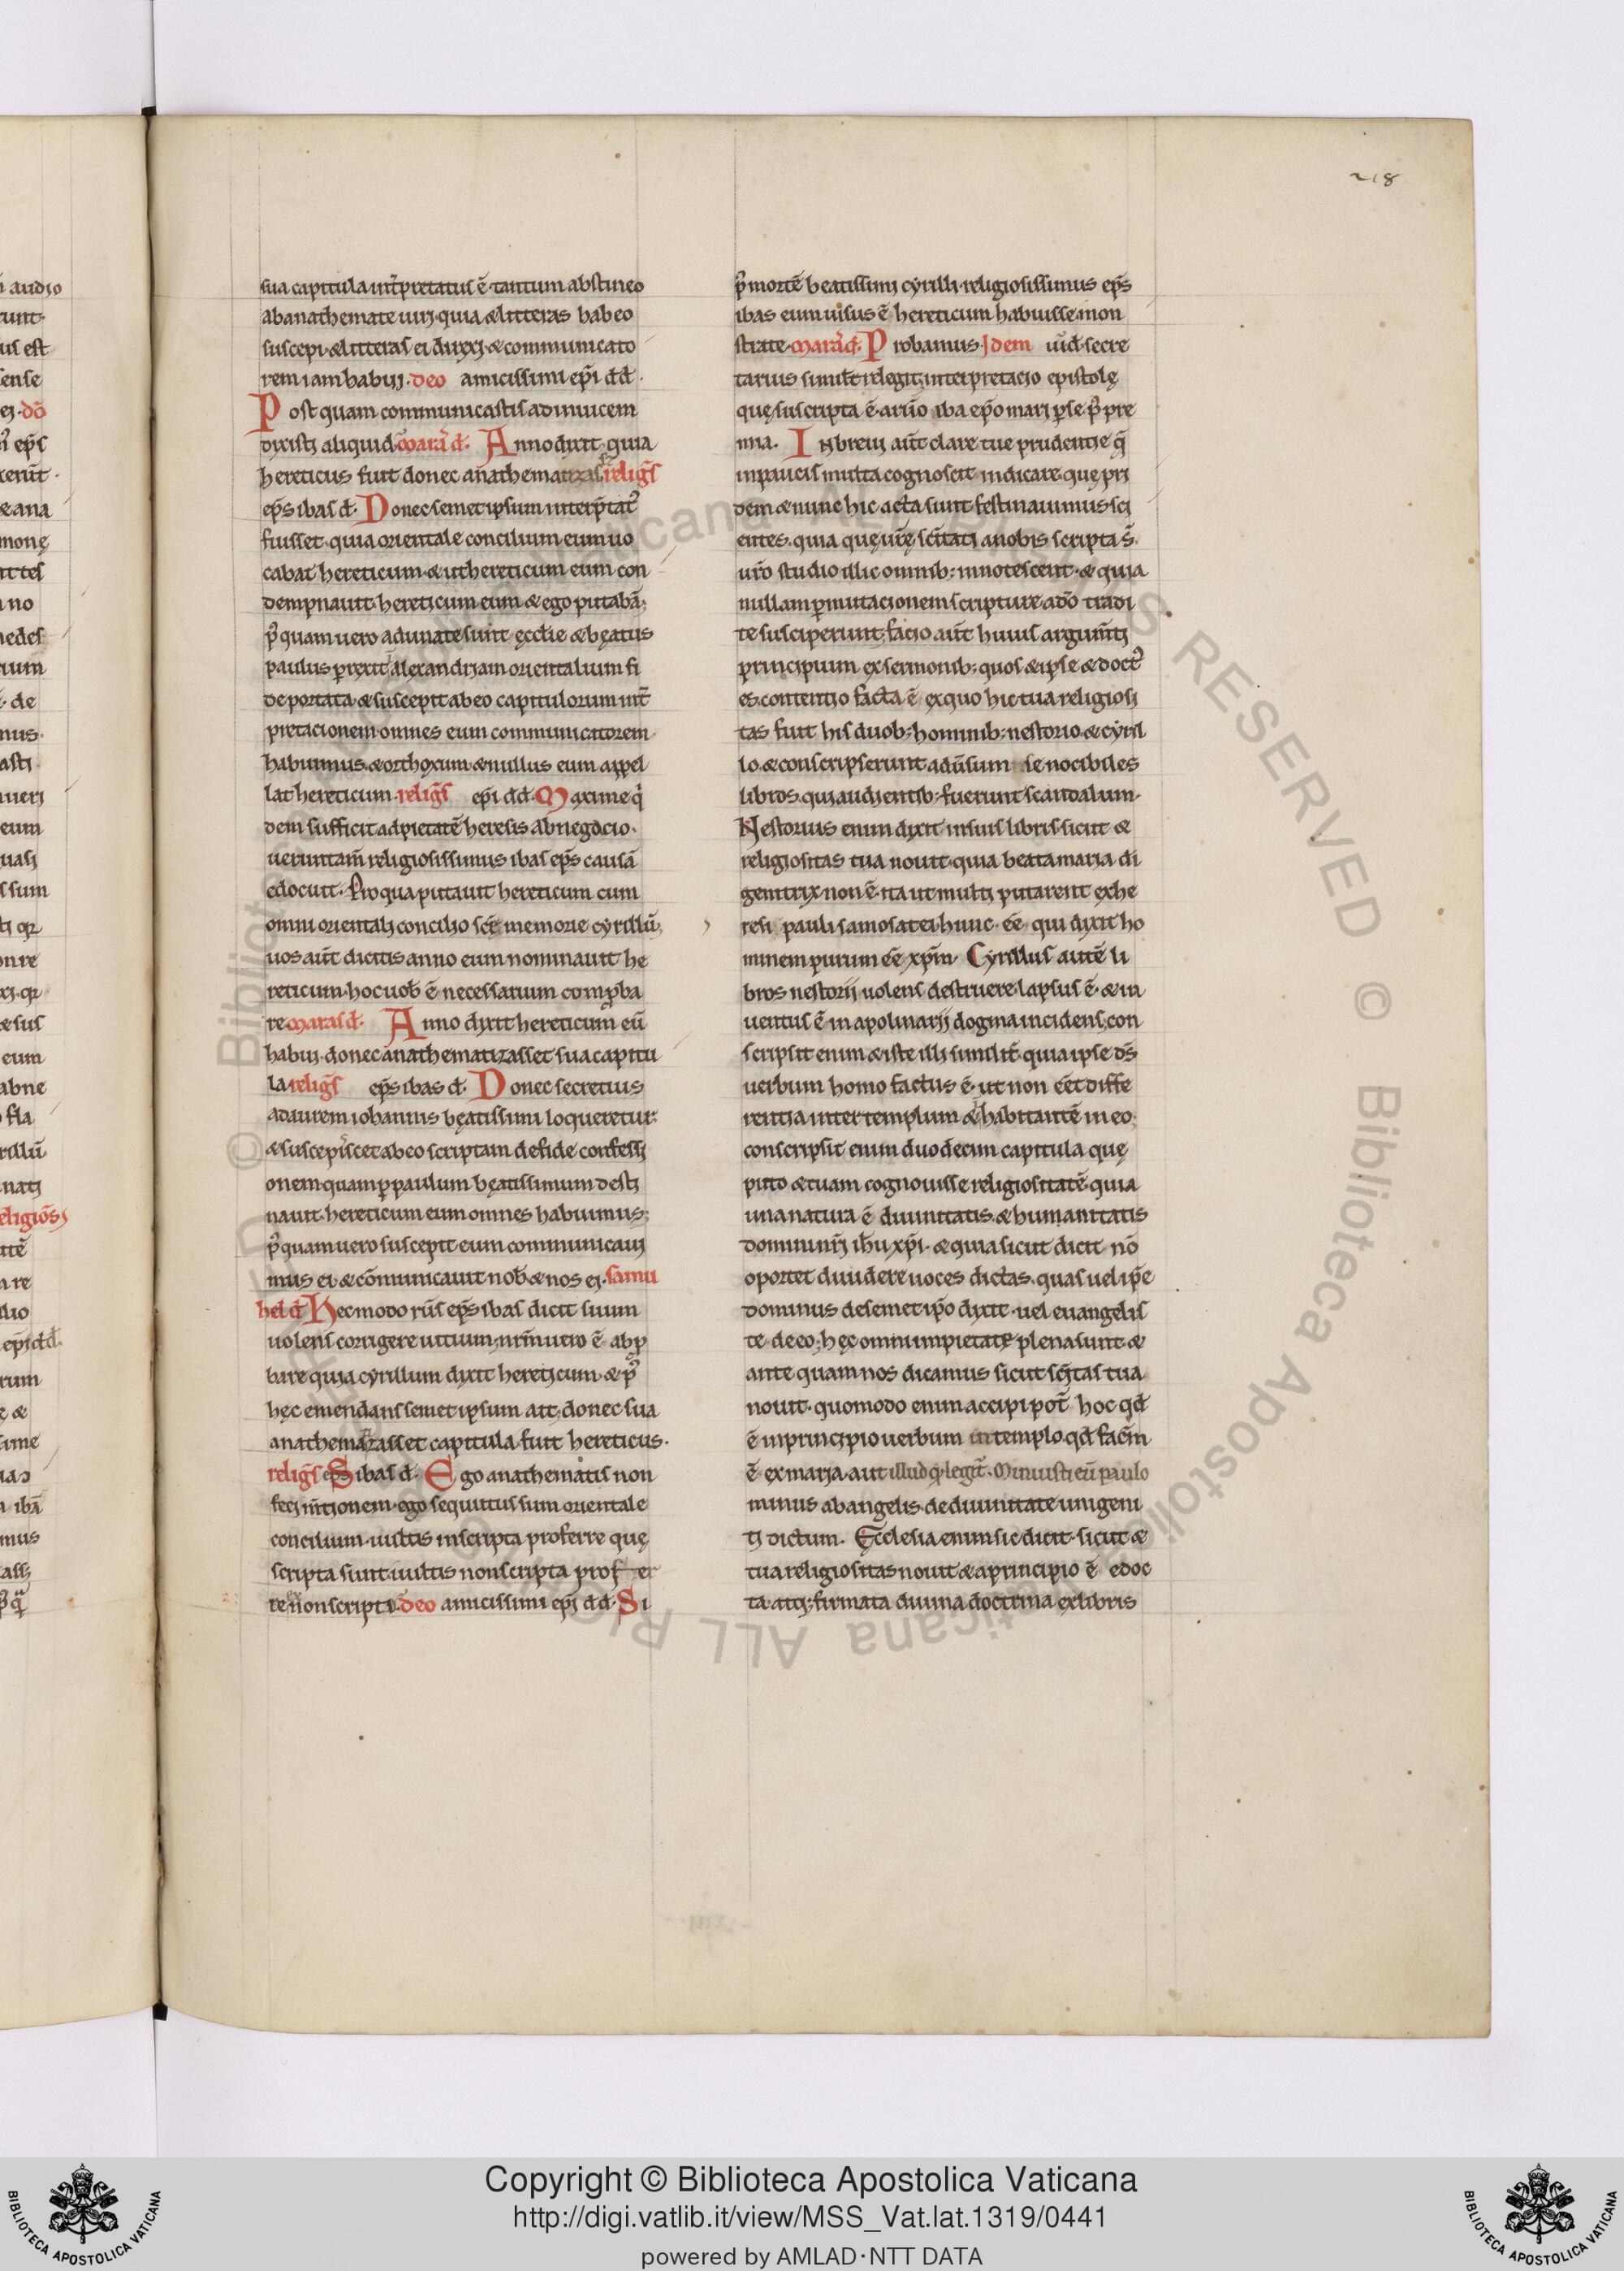 218
sua capitula int̄pretatus ē· tantum abstineo
ab anathemate uiri· quia & litteras habeo
suscepi· & litteras ei duxi· & communicato
rem iam habui· deo amicissimi ep̄i dd̄·
Post quam communicastis ad inuicem
dixisti aliquid· maras d̄· Anno dixit quia
hereticus fuit donec anathematizas religs̄
ep̄s ibas d̄· Donec semet ipsum interp̄tat᷒
fuisset· quia orientale concilium eum uo
cabat hereticum· & ut hereticum eum con
dempnauit· hereticum eum & ego putabā·
p᷒ quam uero adunate sunt ęcclie & bęatus
paulus p̱rexit alexandriam orientalium fi
de portata & suscepit ab eo capitulorum int̄
pretacionem· omnes eum communicatorem
habuimus· & orthoxum & nullus eum appel
lat hereticum· religs̄ ep̄i dd̄· Maxime q
dem sufficit ad pietatē heresis abnegacio·
ueruntam̄ religiosissimus ibas ep̄s causā
edocuit· Pro qua putauit hereticum cum
omni orientali concilio scē memorie cyrillū·
uos aūt dicitis anno eum nominauit he
reticum· hoc uob̄ ē necessarium comp̱ba
re maras d̄· Anno dixit hereticum eū
habui· donec anathematizasset sua capitu
la religs̄ ep̄s ibas d̄· Donec secretius
ad aurem iohannis bęatissimi loqueretur·
& suscepiscet ab eo scriptam de fide confessi
onem quam p̱ paulum bęatissimum desti
nauit· hereticum eum omnes habuimus·
p᷒ quam uero suscepit eum communicaui
mus ei· & cōmunicauit nob̄ & nos ei· samu
hel d̄ Hec modo rūs ep̄s ibas dicit suum
uolens corrigere uitium· nrm̄ uero ē ab p̱
bare quia cyrillum dixit hereticum· & p᷒
hęc emendans semet ipsum ait· donec sua
anathemazasset capitula· fuit hereticus·
religs̄ ep̄s ibas d̄· Ego anathematis non
feci in̄tionem· ego sequutus sum orientale
concilium· uultis inscripta proferre quę
scripta sunt· uultis non scripta profer
re non scripta· deo amicissimi ep̄i dd̄· Si
p᷒ mortē beatissimi cyrilli religiosissimus ep̄s
ibas eum uisus ē hereticum habuisse mon
strate· maras d̄· Probamus· Idem uīd· secre
tarius similit̄ relegit· interpretacio epistolę
quę suscripta ē· aruō iba ep̄o mari p̱se p᷒ pre
ima· In breui aūt clare tue prudentie q̄
in paucis multa cognoscit indicare que pri
dem & nunc hic acta sunt· festinauimus sci
entes· quia quę ur̄ę scītati a nobis scripta s̄·
ur̄o studio illic omnib; innotescent· & quia
nullam p̱mutacionem scripture a dō tradi
te susciperunt· facio aūt huius argum̄ti
principium ex sermonib; quos & ipse & doct᷒
es· contentio facta ē ex quo hic tua religiosi
tas fuit his duob; hominib; nestorio & cyril
lo· & conscripserunt aduūsum se nocibiles
libros qui audientib; fuerunt scandalum·
Nestorius enim dixit in suis libris· sicut &
religiositas tua nouit· quia beata maria di
genitrix non ē· ita ut multi putarent ex he
resi pauli samosatei hunc· eē qui dixit ho
minem purum eē xp̄m· Cyrillus autē li
bros nestorii uolens destruere· lapsus ē· & in
uentus ē in apolinarii dogma incidens· con
scripsit enim & iste illi similit̄· quia ipse ds̄
uerbum homo factus ē· ut non eēt diffe
rentia inter templum & habitantē in eo·
conscripsit enim duodecim capitula quę
puto & tuam cognouisse religiositatē· quia
una natura ē diuinitatis & humanitatis
domini nr̄i ih̄u xp̄i· & quia sicut dicit nō
oportet diuidere uoces dictas· quas uel ip̄e
dominus de semet ip̄o dixit· uel euangelis
te de eo· hęc omni impietate plena sunt· &
ante quam nos dicamus sicut sc̄itas tua
nouit· quomodo enim accipi pot̄ hoc qd̄
ē in principio uerbum in templo qd̄ factm̄
ē ex maria· aut illud qd̄ legit̄· Minuisti eū paulo
minus ab angelis· de diuinitate unigeni
ti dictum· Ecclesia enim sic dicit· sicut &
tua religiositas nouit· & a principio ē edoc
ta· atq; firmata diuina doctrina ex libris
Copyright © Biblioteca Apostolica Vaticana
http://digi.vatlib.it/view/MSS_Vat.lat.1319/0441
powered by AMLAD·NTT DATA
BIBLIOTECA APOSTOLICA VATICANA
BIBLIOTECA APOSTOLICA VATICANA